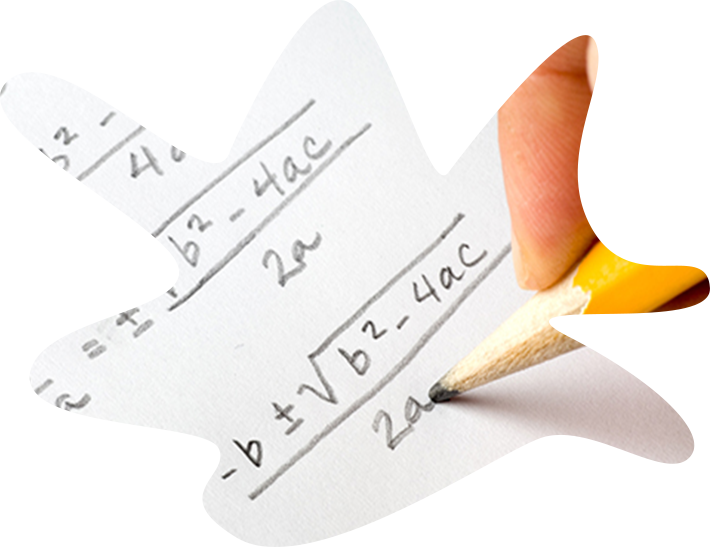 b² -
4a
b² - 4ac
= ± ±
2a
-b ± √b² - 4ac
2a